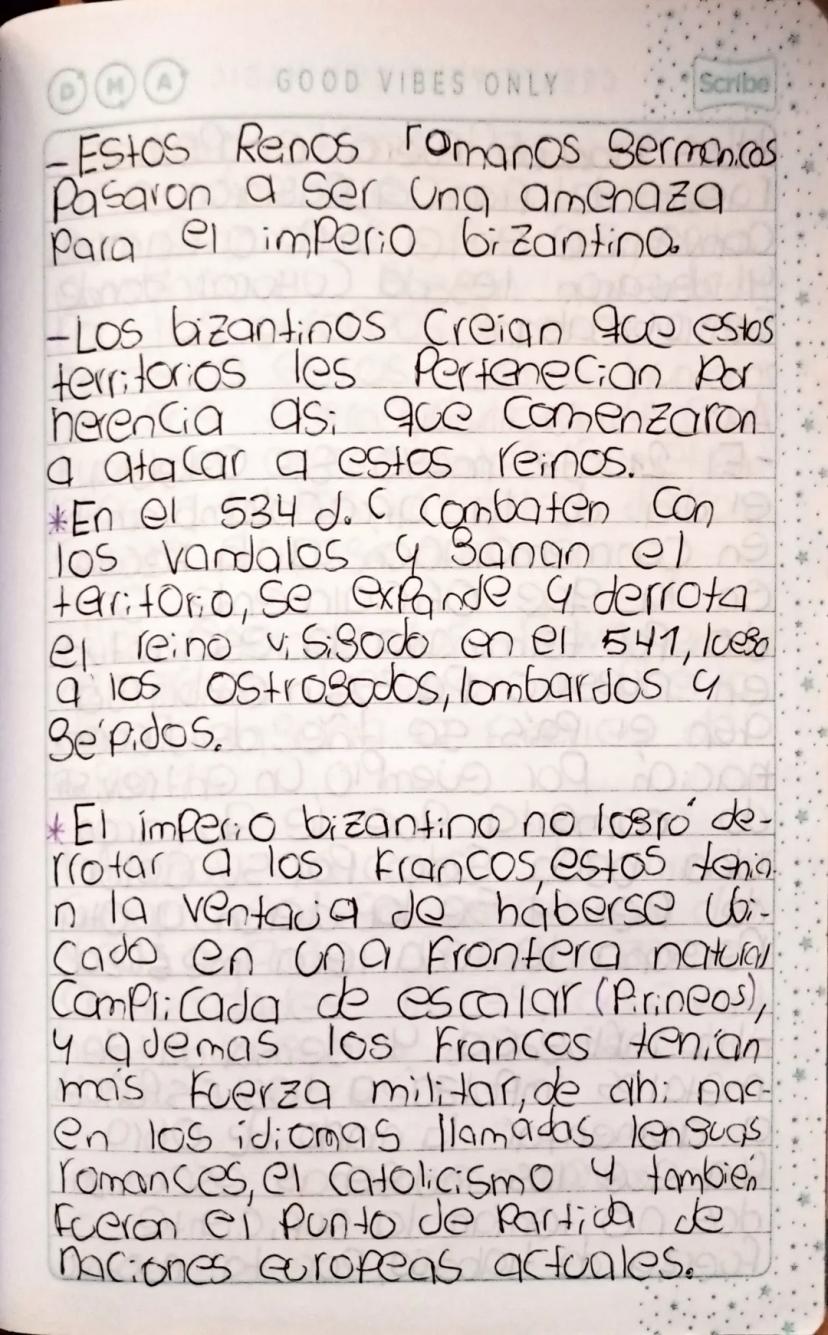 D M A GOOD VIBES ONLY Scribe
-Estos Renos romanos germanicos
Pasaron a ser una amenaza
Para el imperio bizantino.
-Los bizantinos creian que estos
territorios les Pertenecian por
herencia asi que comenzaron
a atacar a estos reinos.
*En el 534 d.C combaten con
los vandalos y ganan el
territorio, se expande y derrota
el reino visigodo en el 541, luego
a los ostrogodos, lombardos y
gépidos.
*El imperio bizantino no logró de-
rrotar a los Francos, estos tenia
n la ventaja de haberse Ubi-
cado en una Frontera natural
Complicada de escalar (Pirineos),
y ademas los Francos tenian
más Fuerza militar, de ahi nac-
en los idiomas llamadas lenguas
romances, el catolicismo y también
Fueron el Punto de Partida de
naciones europeas actuales.